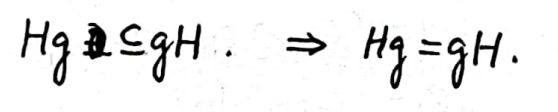 Hg ⊆ gH . ⇒ Hg = gH.